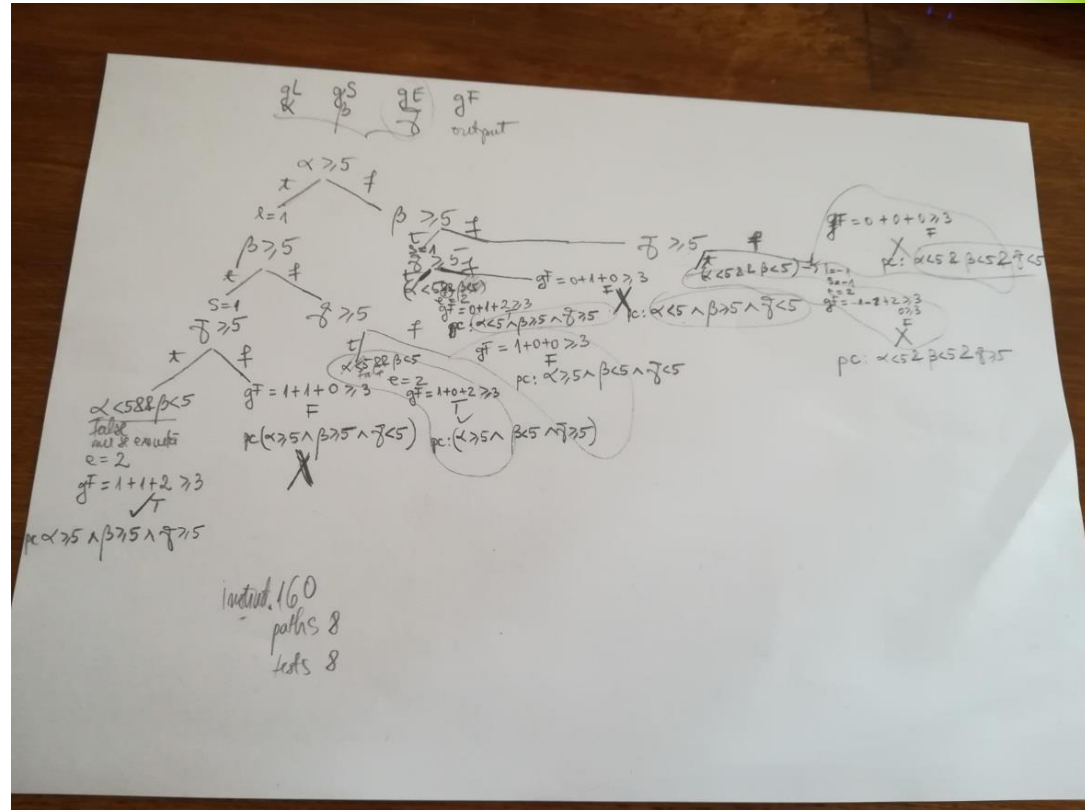 gL gS gE gF
α β γ output
α ≥ 5
t f
l=1
β ≥ 5
t f
s=1
γ ≥ 5
t f
α<5&&β<5
false
e=2
gF=1+1+2 ≥3
✓T
pc α≥5 ∧ β≥5 ∧ γ≥5
gF=1+1+0 ≥3
F
pc(α≥5 ∧ β≥5 ∧ γ<5)
X
γ ≥ 5
t f
α<5&&β<5
e=2
gF=1+0+2 ≥3
T
✓
pc:(α≥5 ∧ β<5 ∧ γ≥5)
gF=1+0+0 ≥3
F
pc: α≥5 ∧ β<5 ∧ γ<5
β ≥ 5
t f
s=1
γ ≥ 5
t f
(α<5&&β<5)
e=2
gF=0+1+2≥3
T
pc: α<5 ∧ β≥5 ∧ γ≥5
gF=0+1+0 ≥3
F X
pc: α<5 ∧ β≥5 ∧ γ<5
γ ≥ 5
t f
(α<5&&β<5)
e=2
F
X
pc: α<5&&β<5&&γ≥5
gF=0+0+0≥3
F
X
pc: α<5&&β<5&&γ<5
instruct. 160
paths 8
tests 8